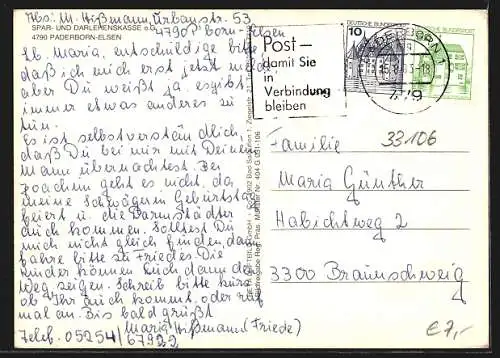 Abs: M. Hißmann, Urbanstr. 53
4790 P'born-Elsen
SPAR- UND DARLEHENSKASSE
4790 PADERBORN-ELSEN
Lb. Maria, entschuldige bitte
daß ich mich erst jetzt melde
aber Du weißt ja, es gibt
immer etwas anderes zu
tun.
Es ist selbstverständlich,
daß Du bei mir mit Deinem
Mann übernachtest. Bei
Joachim geht es nicht, da
meine Schwägerin Geburtstag
feiert u. die Darmstädter
auch kommen. Solltest Du
mich nicht gleich finden, dann
fahre bitte zu Friedes. Die
Kinder können Euch dann den
Weg zeigen. Schreib bitte kurz
ob Ihr auch kommt oder ruf
mal an. Bis bald grüßt
Maria Hißmann (Friede)
Telef. 05254/
67922
Post –
damit Sie
in
Verbindung
bleiben
DEUTSCHE BUNDESPOST
10
PADERBORN 1
479
33106
Familie
Maria Günther
Habichtweg 2
3300 Braunschweig
€ 7,-